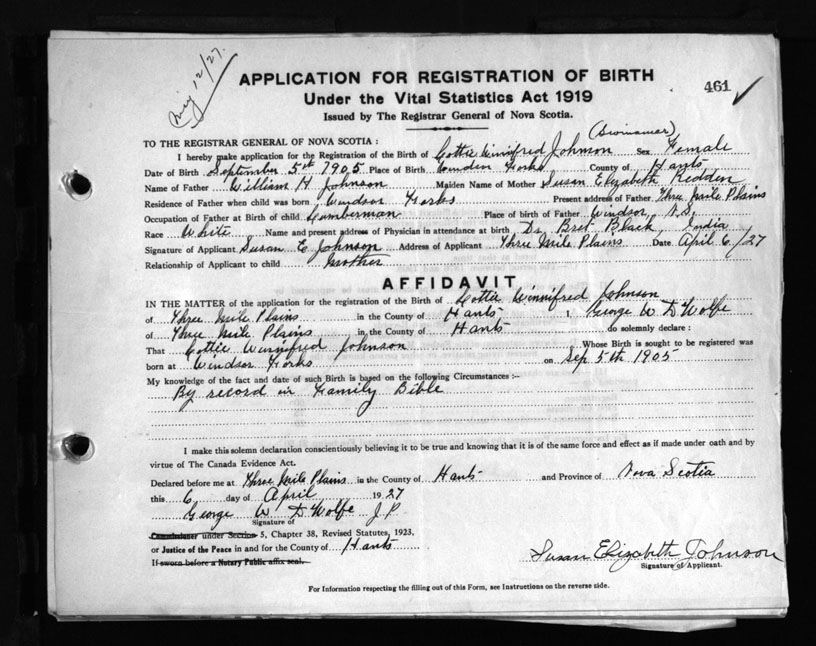 May 12/27.
APPLICATION FOR REGISTRATION OF BIRTH
461 ✓
Under the Vital Statistics Act 1919
Issued by The Registrar General of Nova Scotia.
TO THE REGISTRAR GENERAL OF NOVA SCOTIA :
I hereby make application for the Registration of the Birth of Lottie Winnifred Johnson Sex Female
Date of Birth September 5th 1905 Place of Birth Forks County of Hants
Name of Father William H Johnson Maiden Name of Mother Susan Elizabeth Redden
Residence of Father when child was born Windsor Forks Present address of Father Three Mile Plains
Occupation of Father at Birth of child Lumberman Place of birth of Father Windsor, N.S.
Race White Name and present address of Physician in attendance at birth Dr. Bret Black, India
Signature of Applicant Susan E Johnson Address of Applicant Three Mile Plains Date April 6/27
Relationship of Applicant to child Mother
AFFIDAVIT
IN THE MATTER of the application for the registration of the Birth of Lottie Winnifred Johnson
of Three Mile Plains in the County of Hants I, George W D Wolfe
of Three Mile Plains in the County of Hants do solemnly declare :
That Lottie Winnifred Johnson Whose Birth is sought to be registered was
born at Windsor Forks on Sep 5th 1905
My knowledge of the fact and date of such Birth is based on the following Circumstances :–
By record in Family Bible
I make this solemn declaration conscientiously believing it to be true and knowing that it is of the same force and effect as if made under oath and by
virtue of The Canada Evidence Act.
Declared before me at Three Mile Plains in the County of Hants and Province of Nova Scotia
this 6 day of April 1927
George W D Wolfe J P
Signature of
Commissioner under Section 5, Chapter 38, Revised Statutes, 1923,
or Justice of the Peace in and for the County of Hants
If sworn before a Notary Public affix seal.
Susan Elizabeth Johnson
Signature of Applicant.
For Information respecting the filling out of this Form, see Instructions on the reverse side.